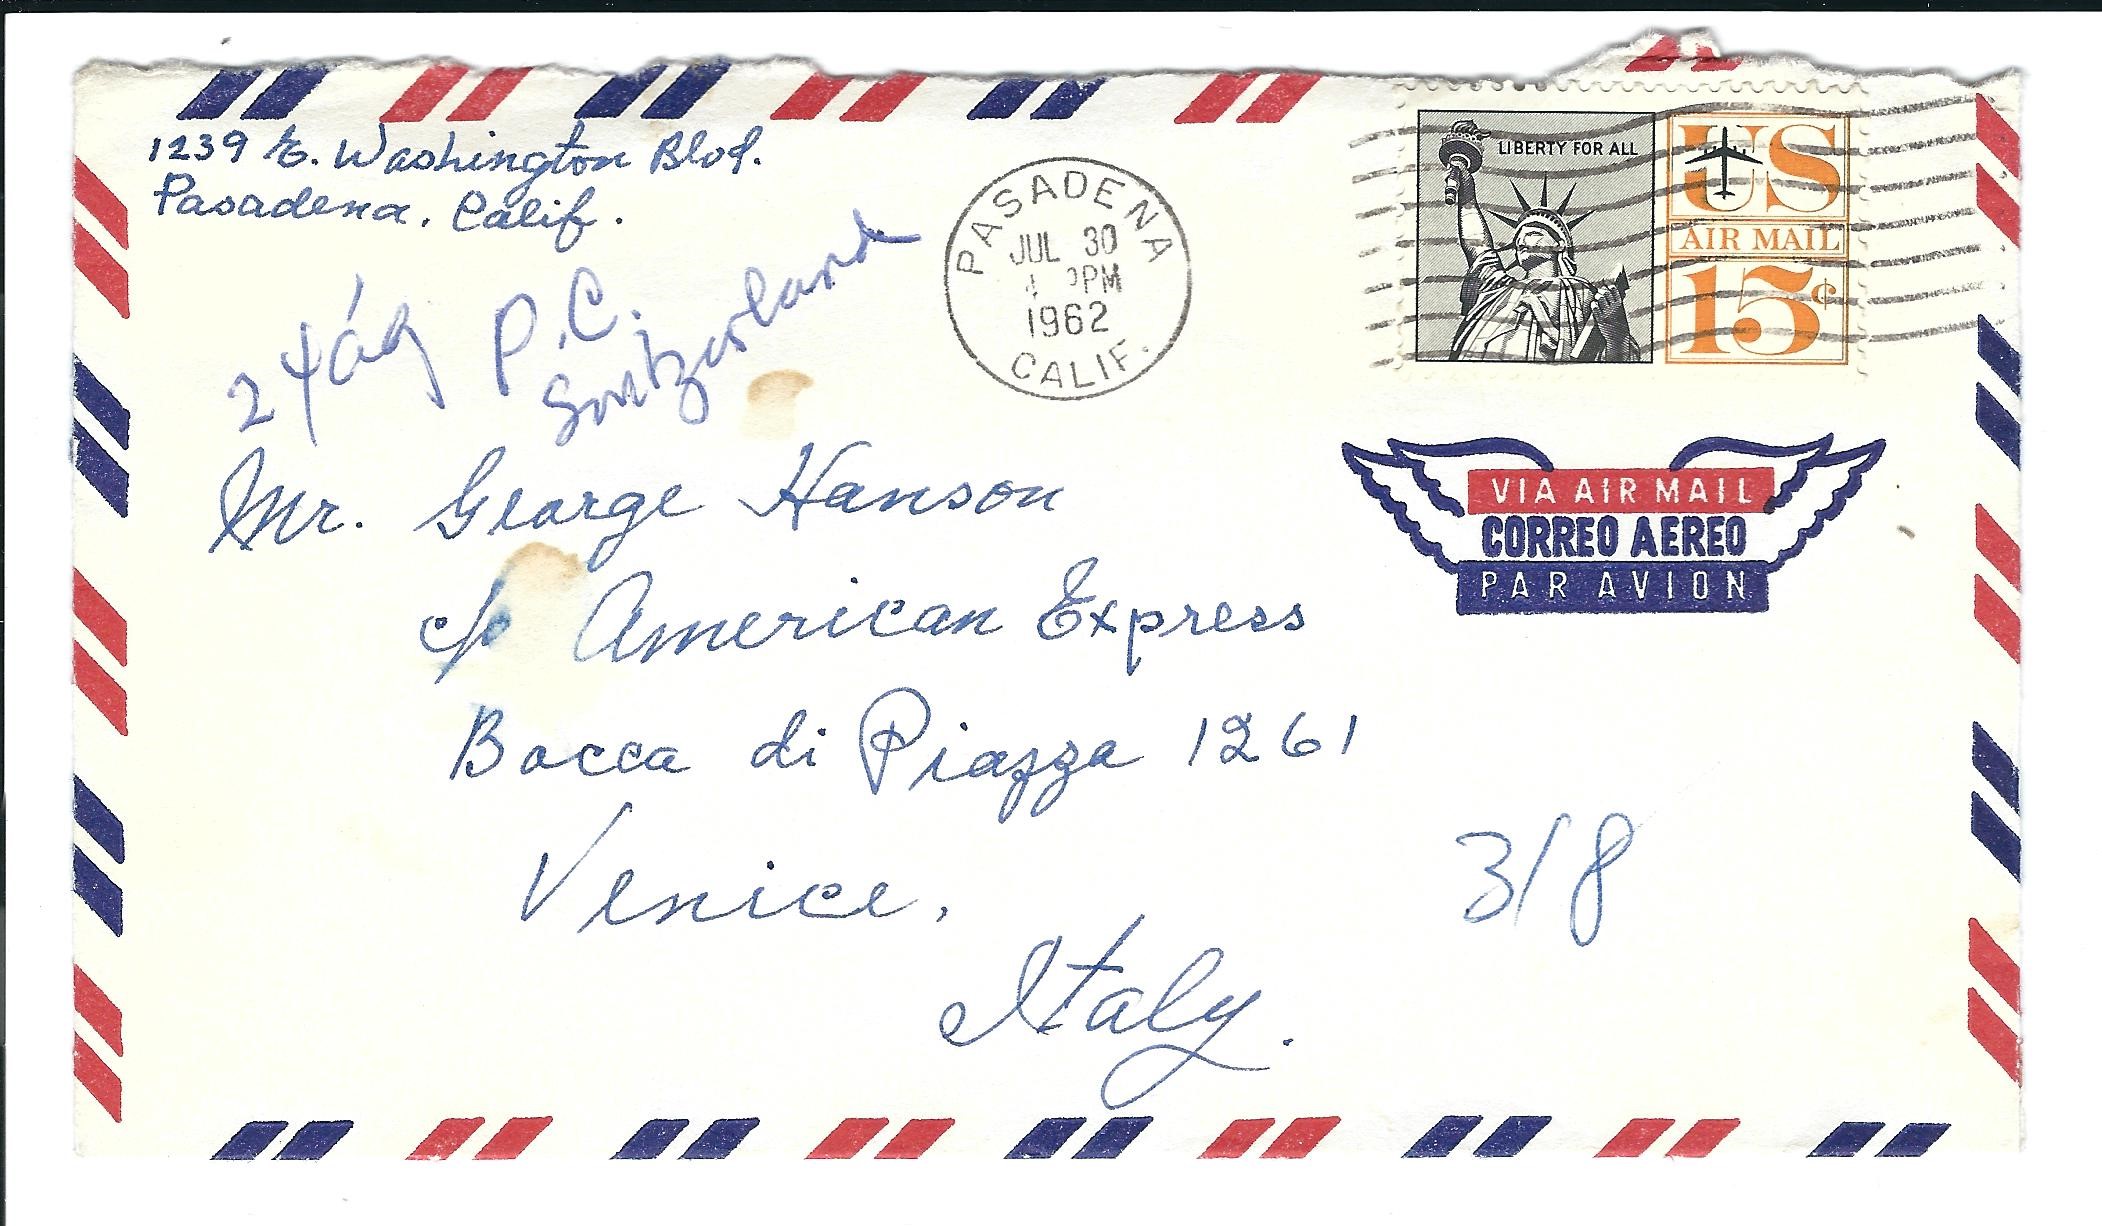 1239 E. Washington Blvd.
Pasadena, Calif.
P.C.
Switzerland
PASADENA
JUL 30
PM
1962
CALIF.
LIBERTY FOR ALL
US
AIR MAIL
15¢
VIA AIR MAIL
CORREO AEREO
PAR AVION
Mr. George Hanson
c/o American Express
Bocca di Piazza 1261
Venice,
Italy.
3/8